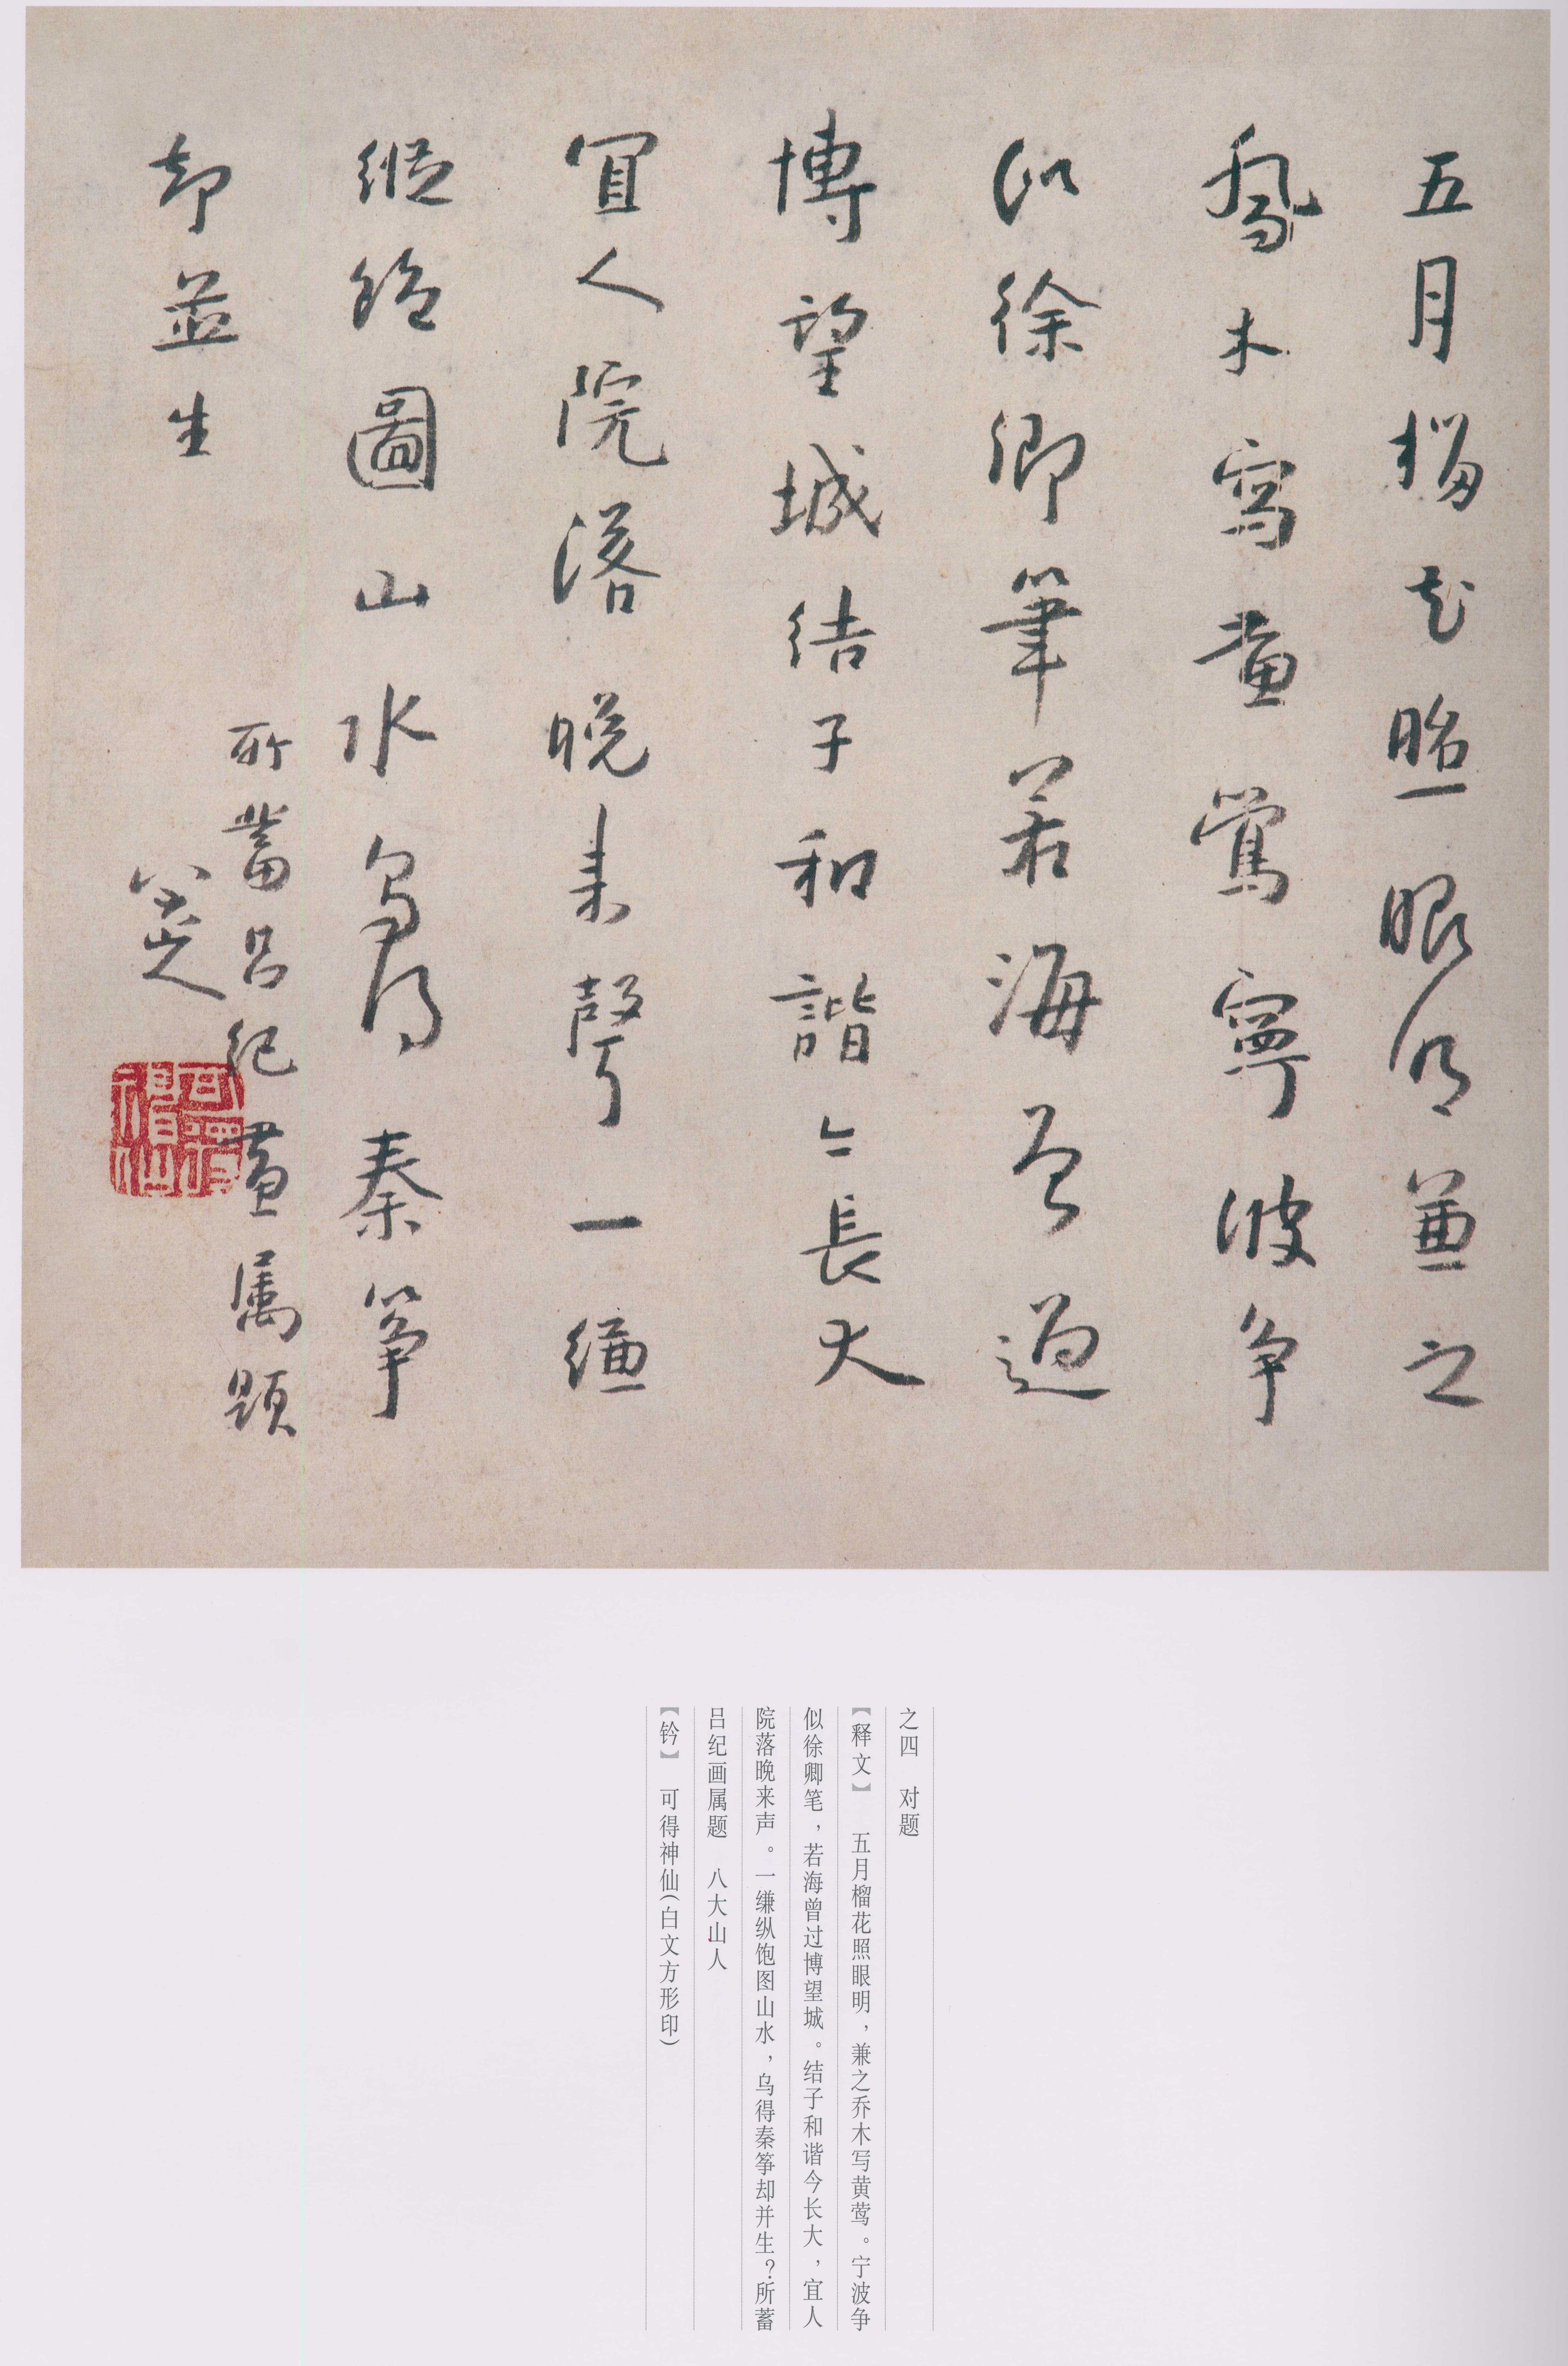 五月榴花照眼明兼之
喬木寫黃鶯寧波爭
似徐卿筆若海曾過
博望城結子和諧今長大
宜人院落晚来聲一縑
縱飽圖山水烏得秦箏
却並生
所蓄呂纪畫属題
八大山人
可得神仙
之四 对题
【释文】 五月榴花照眼明，兼之乔木写黄莺。宁波争
似徐卿笔，若海曾过博望城。结子和谐今长大，宜人
院落晚来声。一缣纵饱图山水，乌得秦筝却并生？所蓄
吕纪画属题 八大山人
【钤】 可得神仙（白文方形印）